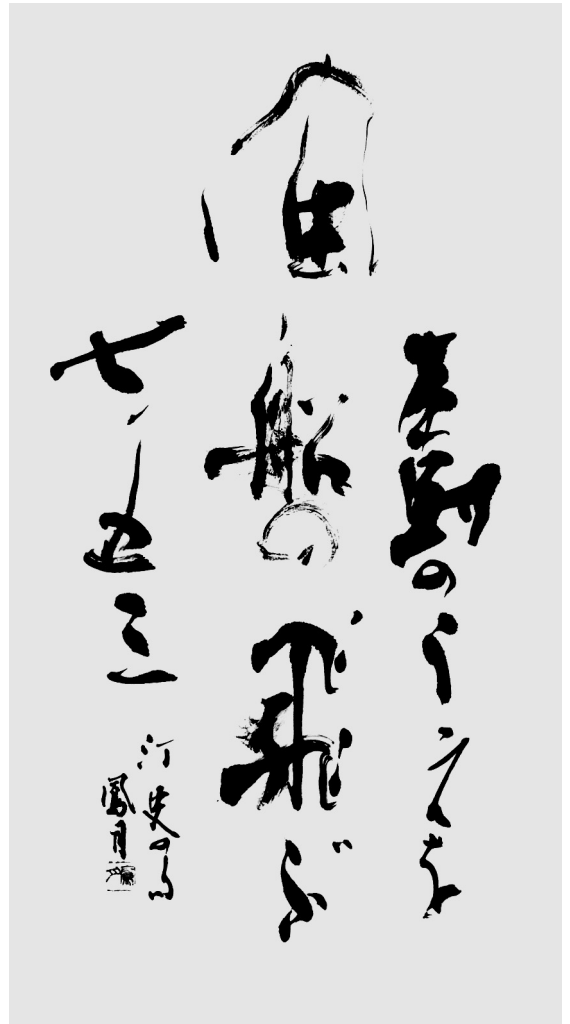 のうえを
風船の飛ぶ
七五三
汀史の句
鳳月